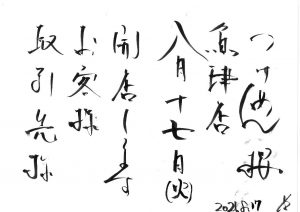 つけめん桜
魚津店
八月十七日(火)
開店します
お客様
取引先様
2021.8.17